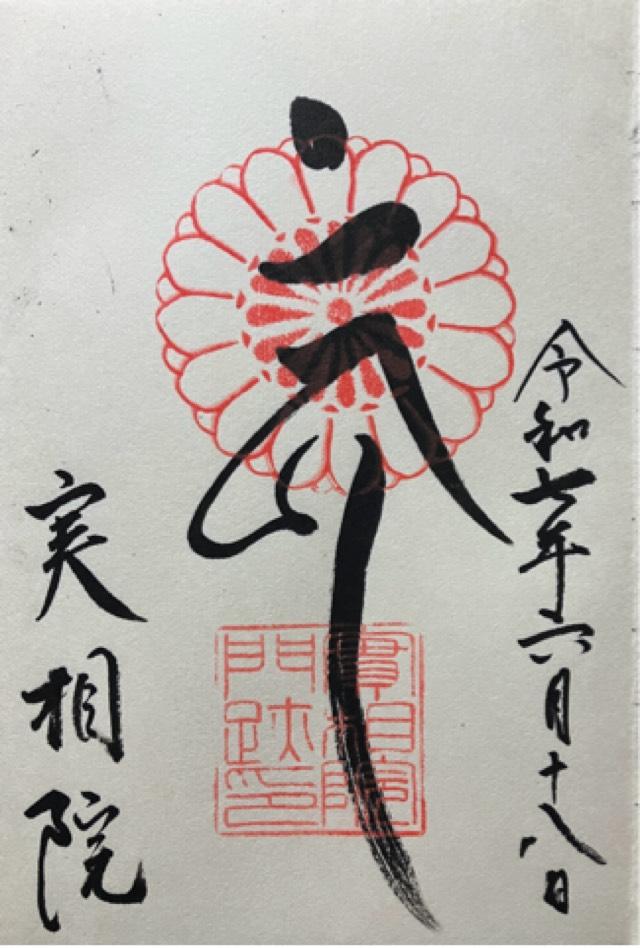 令和七年六月十八日
實相院
門跡印
実相院